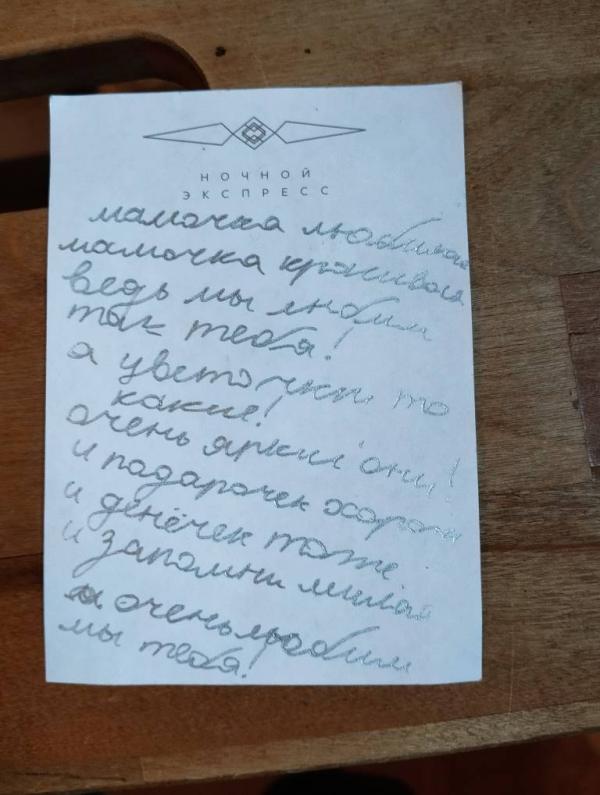 НОЧНОЙ
ЭКСПРЕСС
мамочка любимая
мамочка красивая
ведь мы любим
так тебя!
а цветочки то
какие!
очень яркии они!
и подарочек хорош
и денёчек тоже
и запомни милая
очень любим
мы тебя!